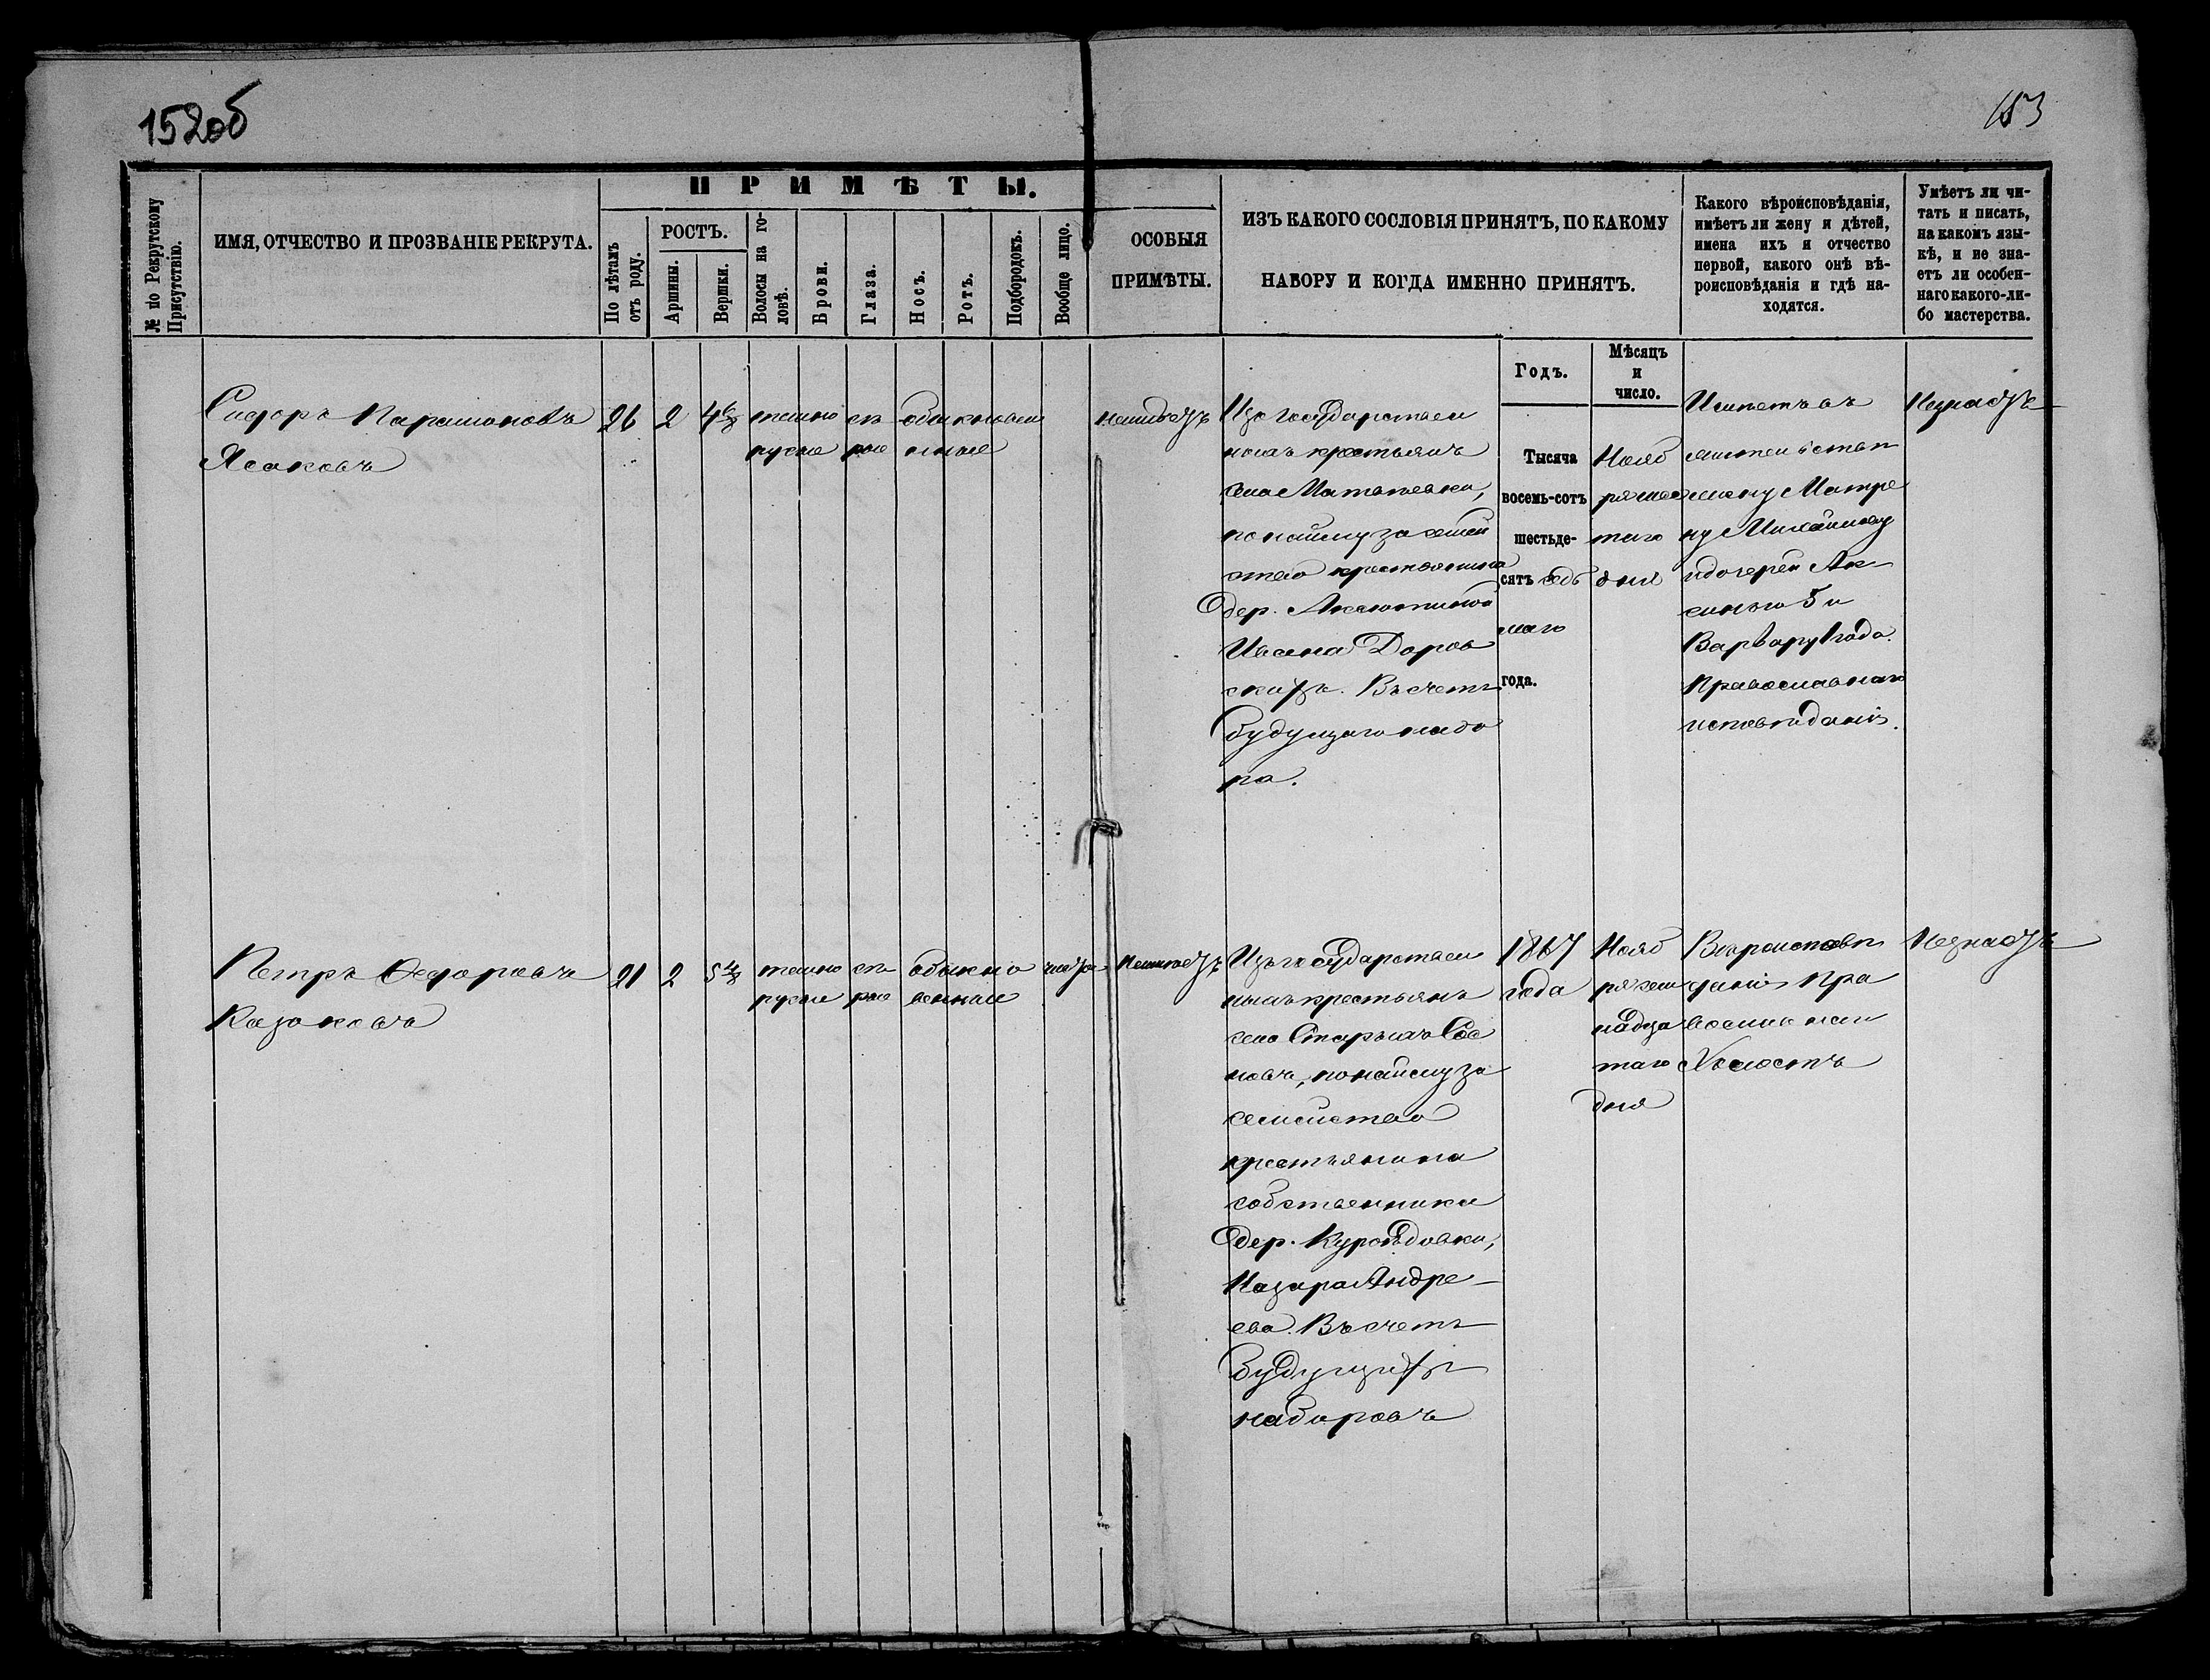 152об
153
№ по Рекрутскому Присутствію.
ИМЯ, ОТЧЕСТВО И ПРОЗВАНІЕ РЕКРУТА.
ПРИМѢТЫ.
По лѣтамъ отъ роду.
РОСТЪ.
Аршины.
Вершки.
Волосы на головѣ.
Брови.
Глаза.
Носъ.
Ротъ.
Подбородокъ.
Вообще лицо.
ОСОБЫЯ
ПРИМѢТЫ.
ИЗЪ КАКОГО СОСЛОВІЯ ПРИНЯТЪ, ПО КАКОМУ
НАБОРУ И КОГДА ИМЕННО ПРИНЯТЪ.
Какого вѣроисповѣданія,
имѣетъ ли жену и дѣтей,
имена ихъ и отчество
первой, какого онѣ вѣ-
роисповѣданія и гдѣ на-
ходятся.
Умѣетъ ли чи-
тать и писать,
на какомъ язы-
кѣ, и не зна-
етъ ли особен-
наго какого-ли-
бо мастерства.
Годъ.
Мѣсяцъ
и
число.
Сидоръ Парамоновъ
Ясаковъ
26
2
4 6/8
темно
русые
сѣ
рые
обыкновен
ныя
неимѣетъ
Изъ государствен
ныхъ крестьянъ
села Матвѣевки,
по найму за семей
ство крестьянина
дер. Аксютиной
Ивана Доров
скихъ. Въ счетъ
будущаго набо
ра.
Тысяча
восемь-сотъ
шестьде-
сятъ седь
маго
года.
Нояб
ря шес
таго
дня
Имѣетъ въ
жену Матре
ну Михайлову
и дочерей Ак-
синью 5 и
Варвару 1 года.
Православнаго
исповѣданія.
Незнаетъ
Петръ Ѳедоровъ
Казаковъ
21
2
5 4/8
темно
русые
сѣ
рые
обыкно
венные
чисто
Неимѣетъ
Изъ государствен
ныхъ крестьянъ
села Старыхъ Сос
новъ, по найму за
семейство
крестьянина
собственника
дер. Куроѣдовки,
Назара Андре-
ева. Въ счетъ
будущихъ
наборовъ
1867
года
Нояб
ря сем
надца
таго
дня
Вѣроисповѣ
данія Пра
Холостъ
Незнаетъ